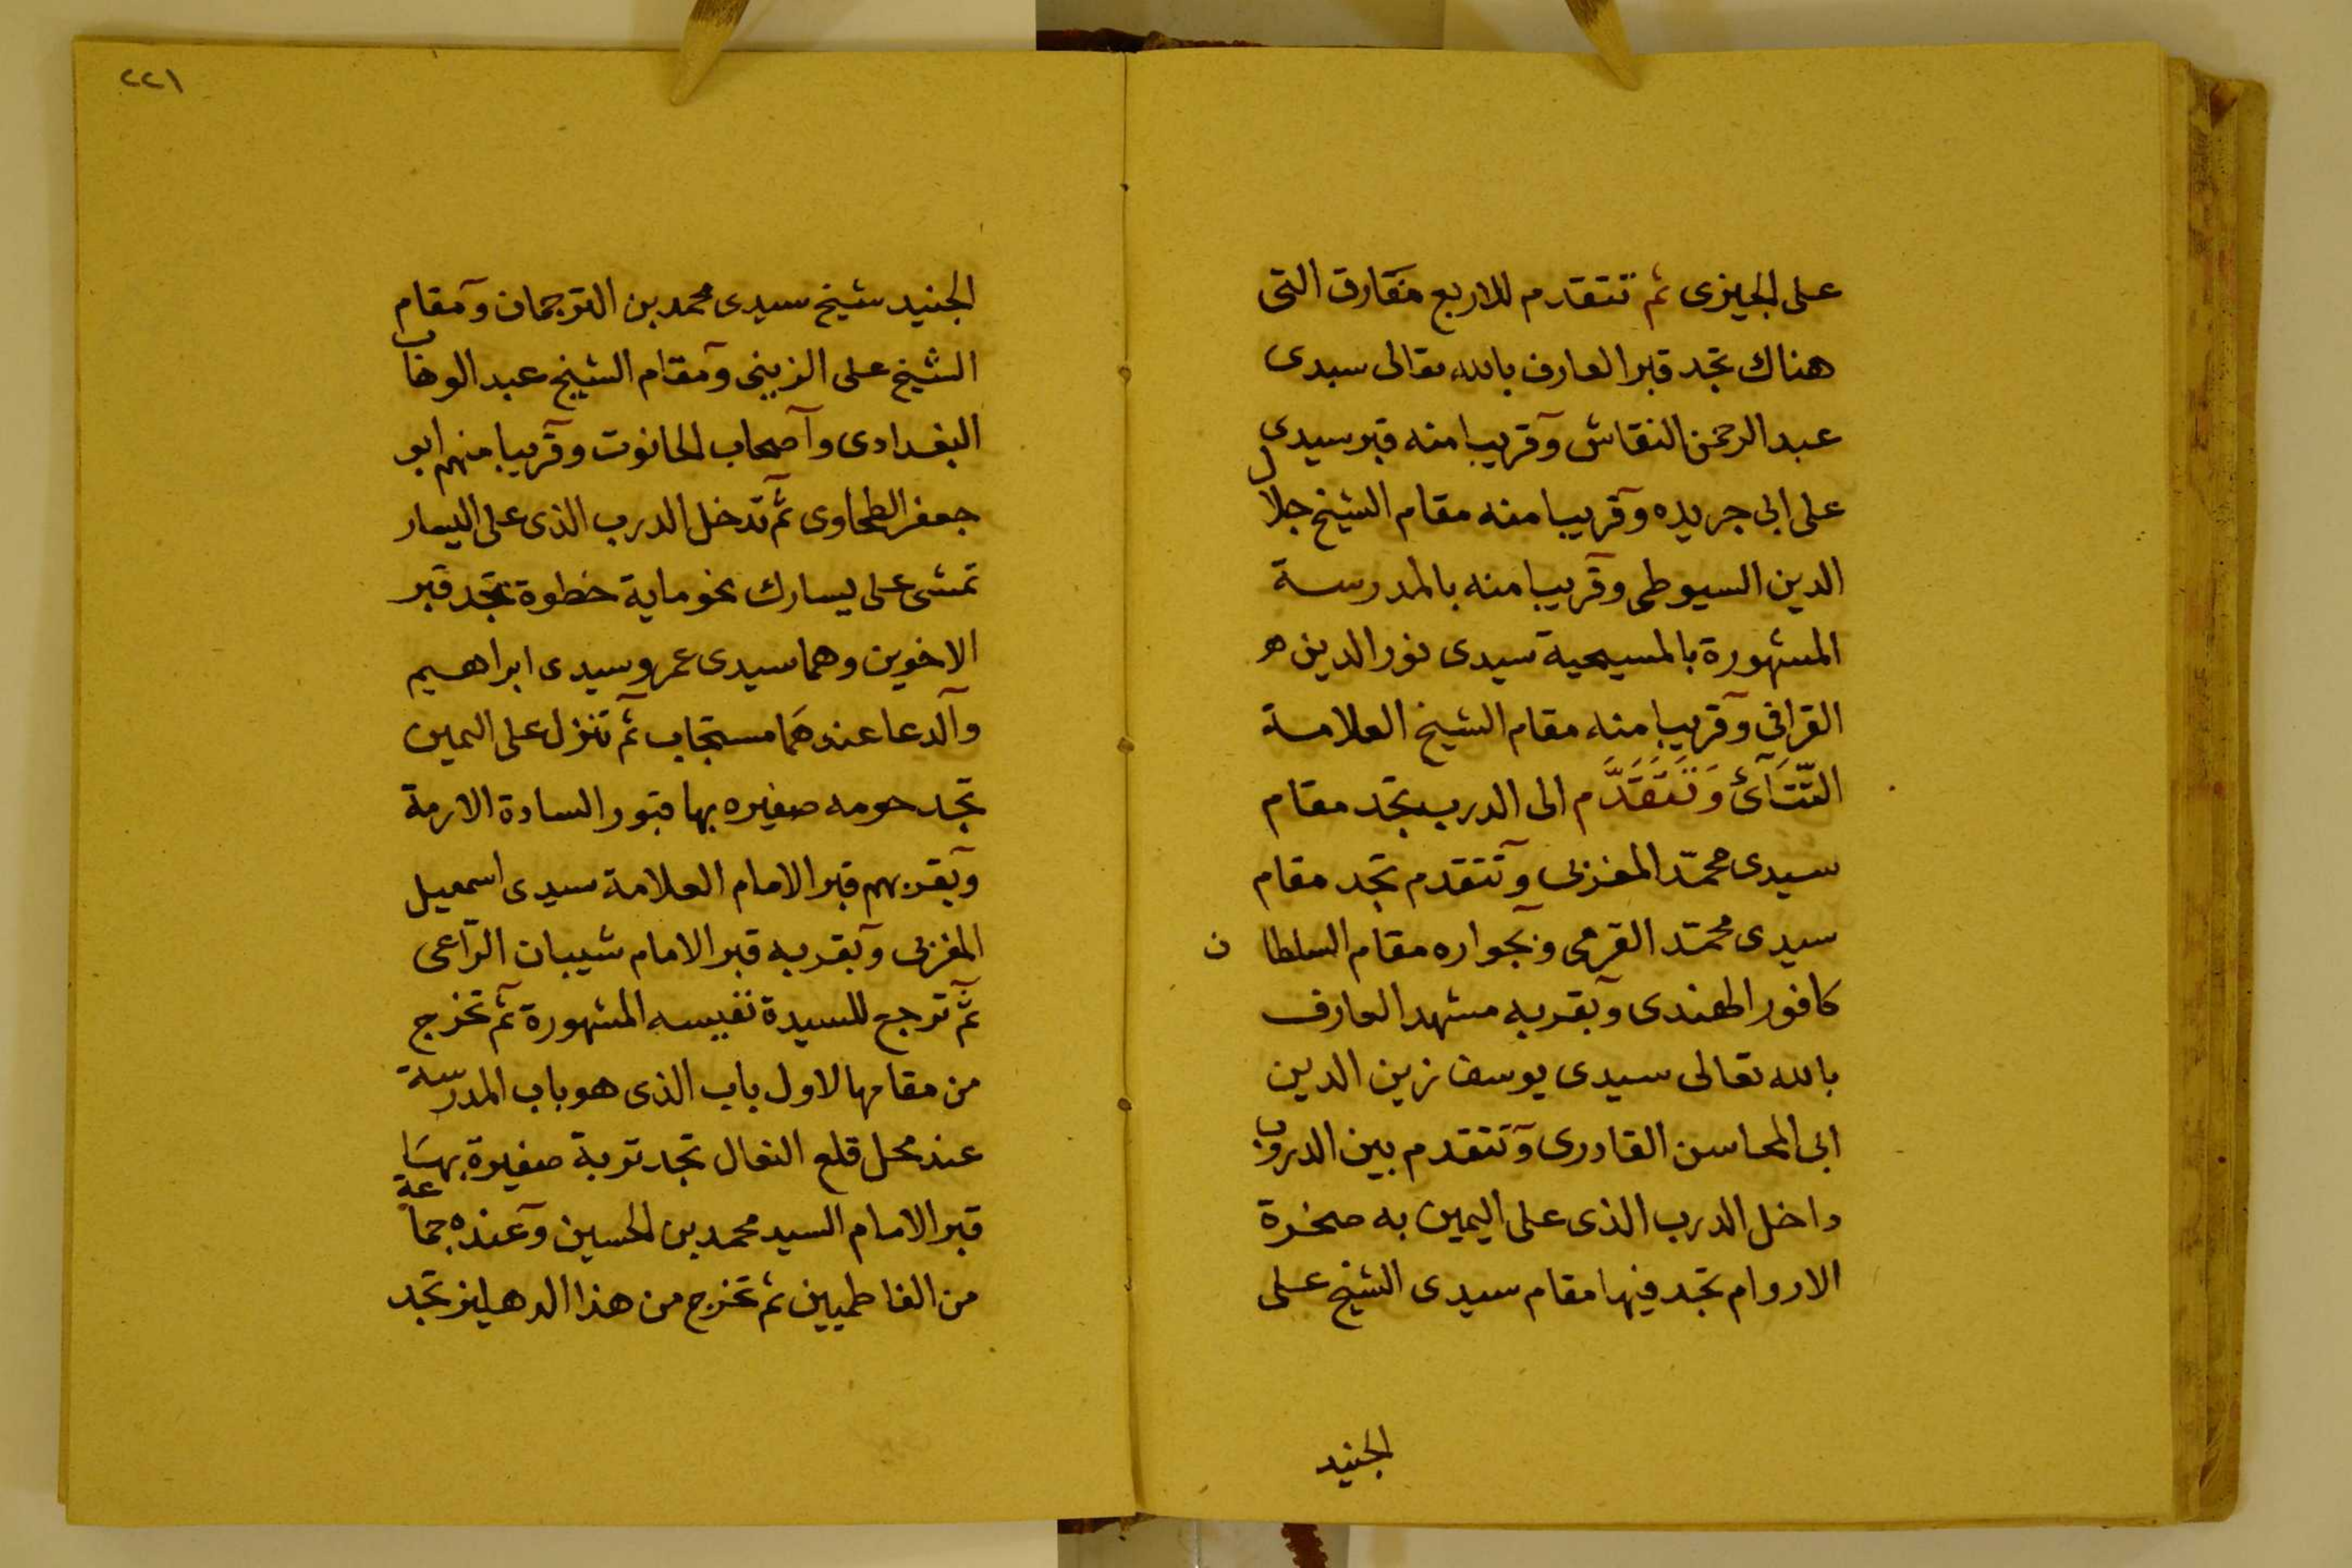 على الجيزى ثم تتقدم للاربع مفارق التى
هناك تجد قبر العارف بالله تعالى سيدى
عبد الرحمن النقاش وقريبا منه قبر سيدى
على ابى جريده وقريبا منه مقام الشيخ جلال
الدين السيوطى وقريبا منه بالمدرسة
المشهورة بالمسيحية سيدى نور الدين
القرافي وقريبا منه مقام الشيخ العلامة
التتآئ وَتَتَقَدَّم الى الدرب تجد مقام
سيدى محمّد المغربى وتتقدم تجد مقام
سيدى محمّد القرمى وبجواره مقام السلطان
كافور الهندى وبقربه مشهد العارف
بالله تعالى سيدى يوسف زين الدين
ابى المحاسن القادرى وتتقدم بين الدروب
داخل الدرب الذى على اليمين به صخرة
الاروام تجد فيها مقام سيدى الشيخ على
الجنيد
٢٢١
الجنيد شيخ سيدى محمد بن الترجمان ومقام
الشيخ على الزينى ومقام الشيخ عبد الوهاب
البغدادى وآصحاب الحانوت وقريبا منهم ابو
جعفر الطحاوى ثم تدخل الدرب الذى على اليسار
تمشى على يسارك نحو ماية خطوة تجد قبر
الاخوين وهما سيدى عمر وسيدى ابراهيم
وآلدعا عندهَما مستجاب ثم تنزل على اليمين
تجد حومه صغيره بها قبور السادة الارمة
وبقربهم قبر الامام العلامة سيدى اسمعيل
المغربى وبقربه قبر الامام شيبان الرّاعى
ثم ترجع للسيدة نفيسه المشهورة ثم تخرج
من مقامها لاول باب الذى هو باب المدرسة
عند محل قلع النعال تجد تربة صغيرة بهَا
قبر الامام السيد محمد بن الحسين وعنده جماعة
من الفاطميين ثم تخرج من هذا الدهليز تجد